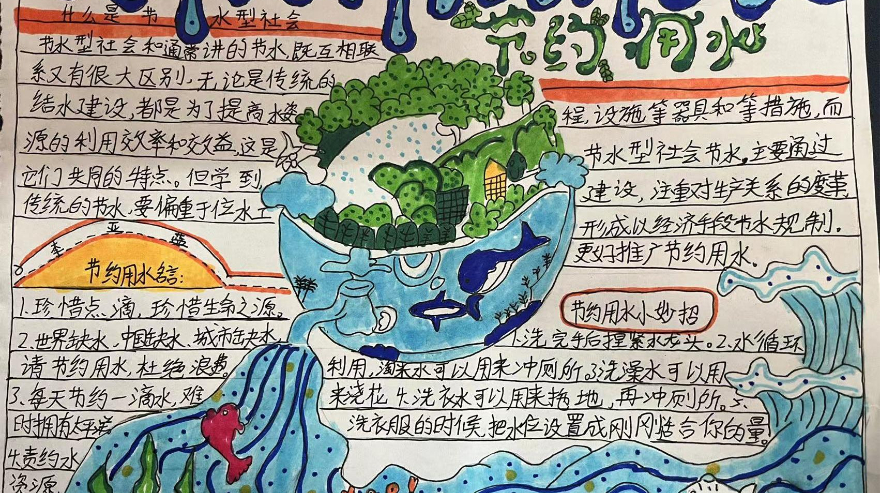 什么是节水型社会
节约用水
节水型社会和通常讲的节水,既互相联
系又有很大区别。无论是传统的
结水建设,都是为了提高水资
源的利用效率和效益,这是
记们共同的特点。但学到
传统的节水,要偏重于位水工
程、设施等器具和等措施,而
节水型社会节水。主要通过
建设,注重对生产关系的变革
形成以经济手段节水规制.
更好推广节约用水。
节约用水名言:
1.珍惜点、滴,珍惜生命之源.
2.世界缺水、中国缺水、城市缺水
请节约用水,杜绝浪费.
3.每天节约一滴水,难
时拥有太平洋
4.责约水
资源
节约用水小妙招
1.洗完手后捏紧水龙头。2.水循环
利用,淘米水可以用来冲厕所。3.洗澡水可以用
来浇花 4.洗衣水可以用来拖地,再冲厕所。5.
洗衣服的时候,把水位设置成刚刚适合你的量。